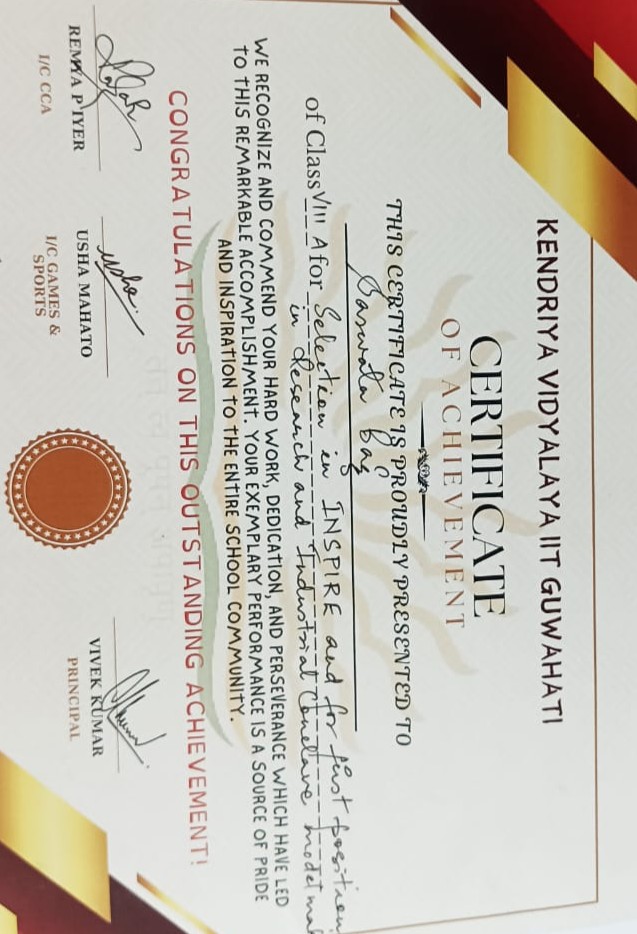 KENDRIYA VIDYALAYA IIT GUWAHATI
CERTIFICATE
OF ACHIEVEMENT
THIS CERTIFICATE IS PROUDLY PRESENTED TO
Saswata Bag
of Class VIII A for Selection in INSPIRE and for first position
in Research and Industrial Conclave model mak
WE RECOGNIZE AND COMMEND YOUR HARD WORK, DEDICATION, AND PERSEVERANCE WHICH HAVE LED
TO THIS REMARKABLE ACCOMPLISHMENT. YOUR EXEMPLARY PERFORMANCE IS A SOURCE OF PRIDE
AND INSPIRATION TO THE ENTIRE SCHOOL COMMUNITY.
CONGRATULATIONS ON THIS OUTSTANDING ACHIEVEMENT!
तत् त्वं पूषन् अपावृणु
usha
REMYA P IYER
I/C CCA
USHA MAHATO
I/C GAMES &
SPORTS
VIVEK KUMAR
PRINCIPAL